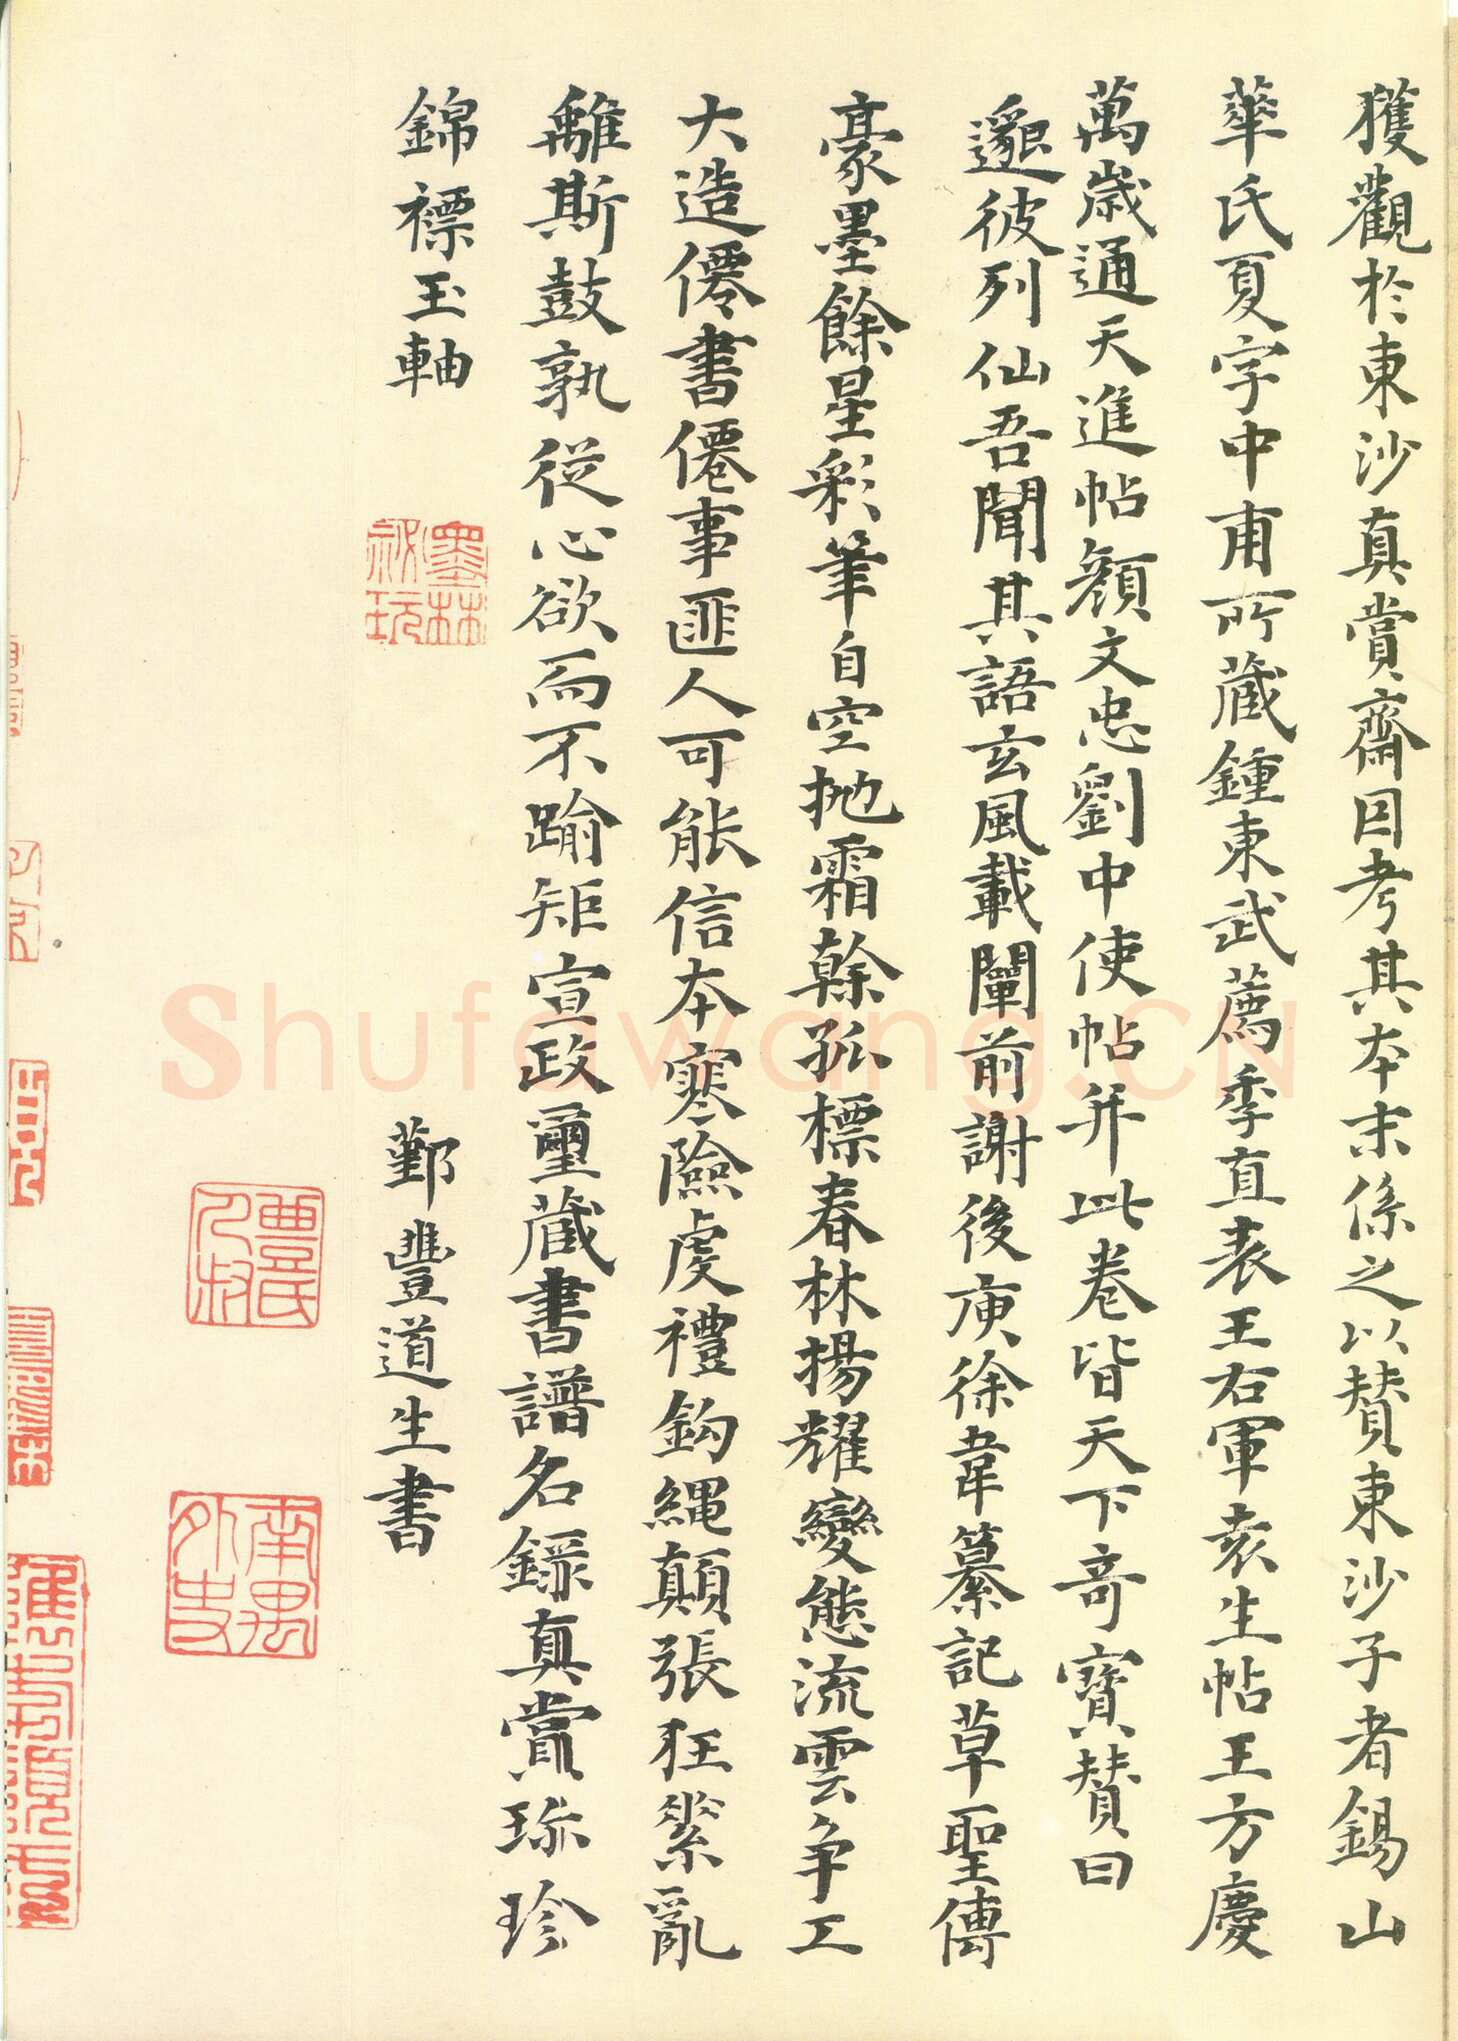 獲觀於東沙真賞齋因考其本末係之以贊東沙子者錫山
華氏夏字中甫所藏鍾東武薦季直表王右軍袁生帖王方慶
萬歲通天進帖顏文忠劉中使帖并此卷皆天下奇寶贊曰
邈彼列仙吾聞其語玄風載闡前謝後庾徐韋纂記草聖傳
豪墨餘星彩筆自空拋霜幹孤標春林揚耀變態流雲争工
大造僊書僊事匪人可能信本寒險虔禮鈎繩顛張狂縈亂
離斯鼓孰從心欲而不踰矩宣政璽藏書譜名錄真賞珎珍
錦褾玉軸
鄞豐道生書
墨林祕玩
豐氏人叔
南禺外史
Shufawang.CN